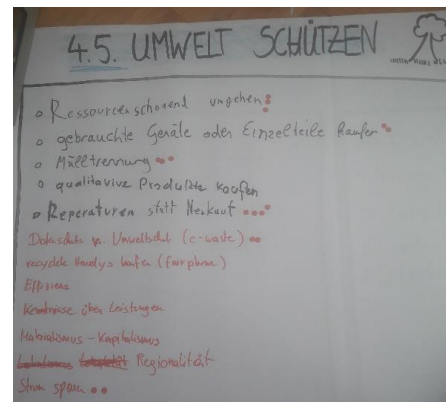 4.5. UMWELT SCHÜTZEN
Ressourcenschonend umgehen
gebrauchte Geräte oder Einzelteile kaufen
Mülltrennung
qualitavive Produkte kaufen
Reperaturen statt Neukauf
Datenschutz vs. Umweltschutz (e-waste)
recycelte Handys kaufen (fairphone)
Effizienz
Kenntnisse über Leistungen
Materialismus - Kapitalismus
Regionalität
Strom sparen